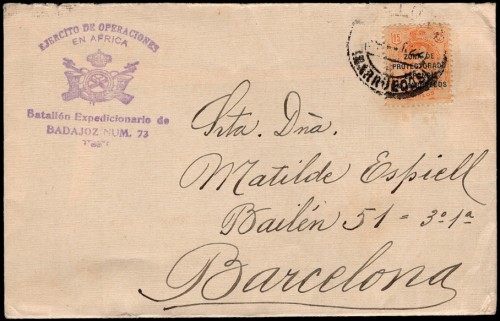 EJERCITO DE OPERACIONES
EN AFRICA
Batallón Expedicionario de
BADAJOZ NUM. 73
15
ZONA DE
PROTECTORADO
MARRUECOS
Srta. Dña.
Matilde Espiell
Bailén 51 = 3º 1ª
Barcelona